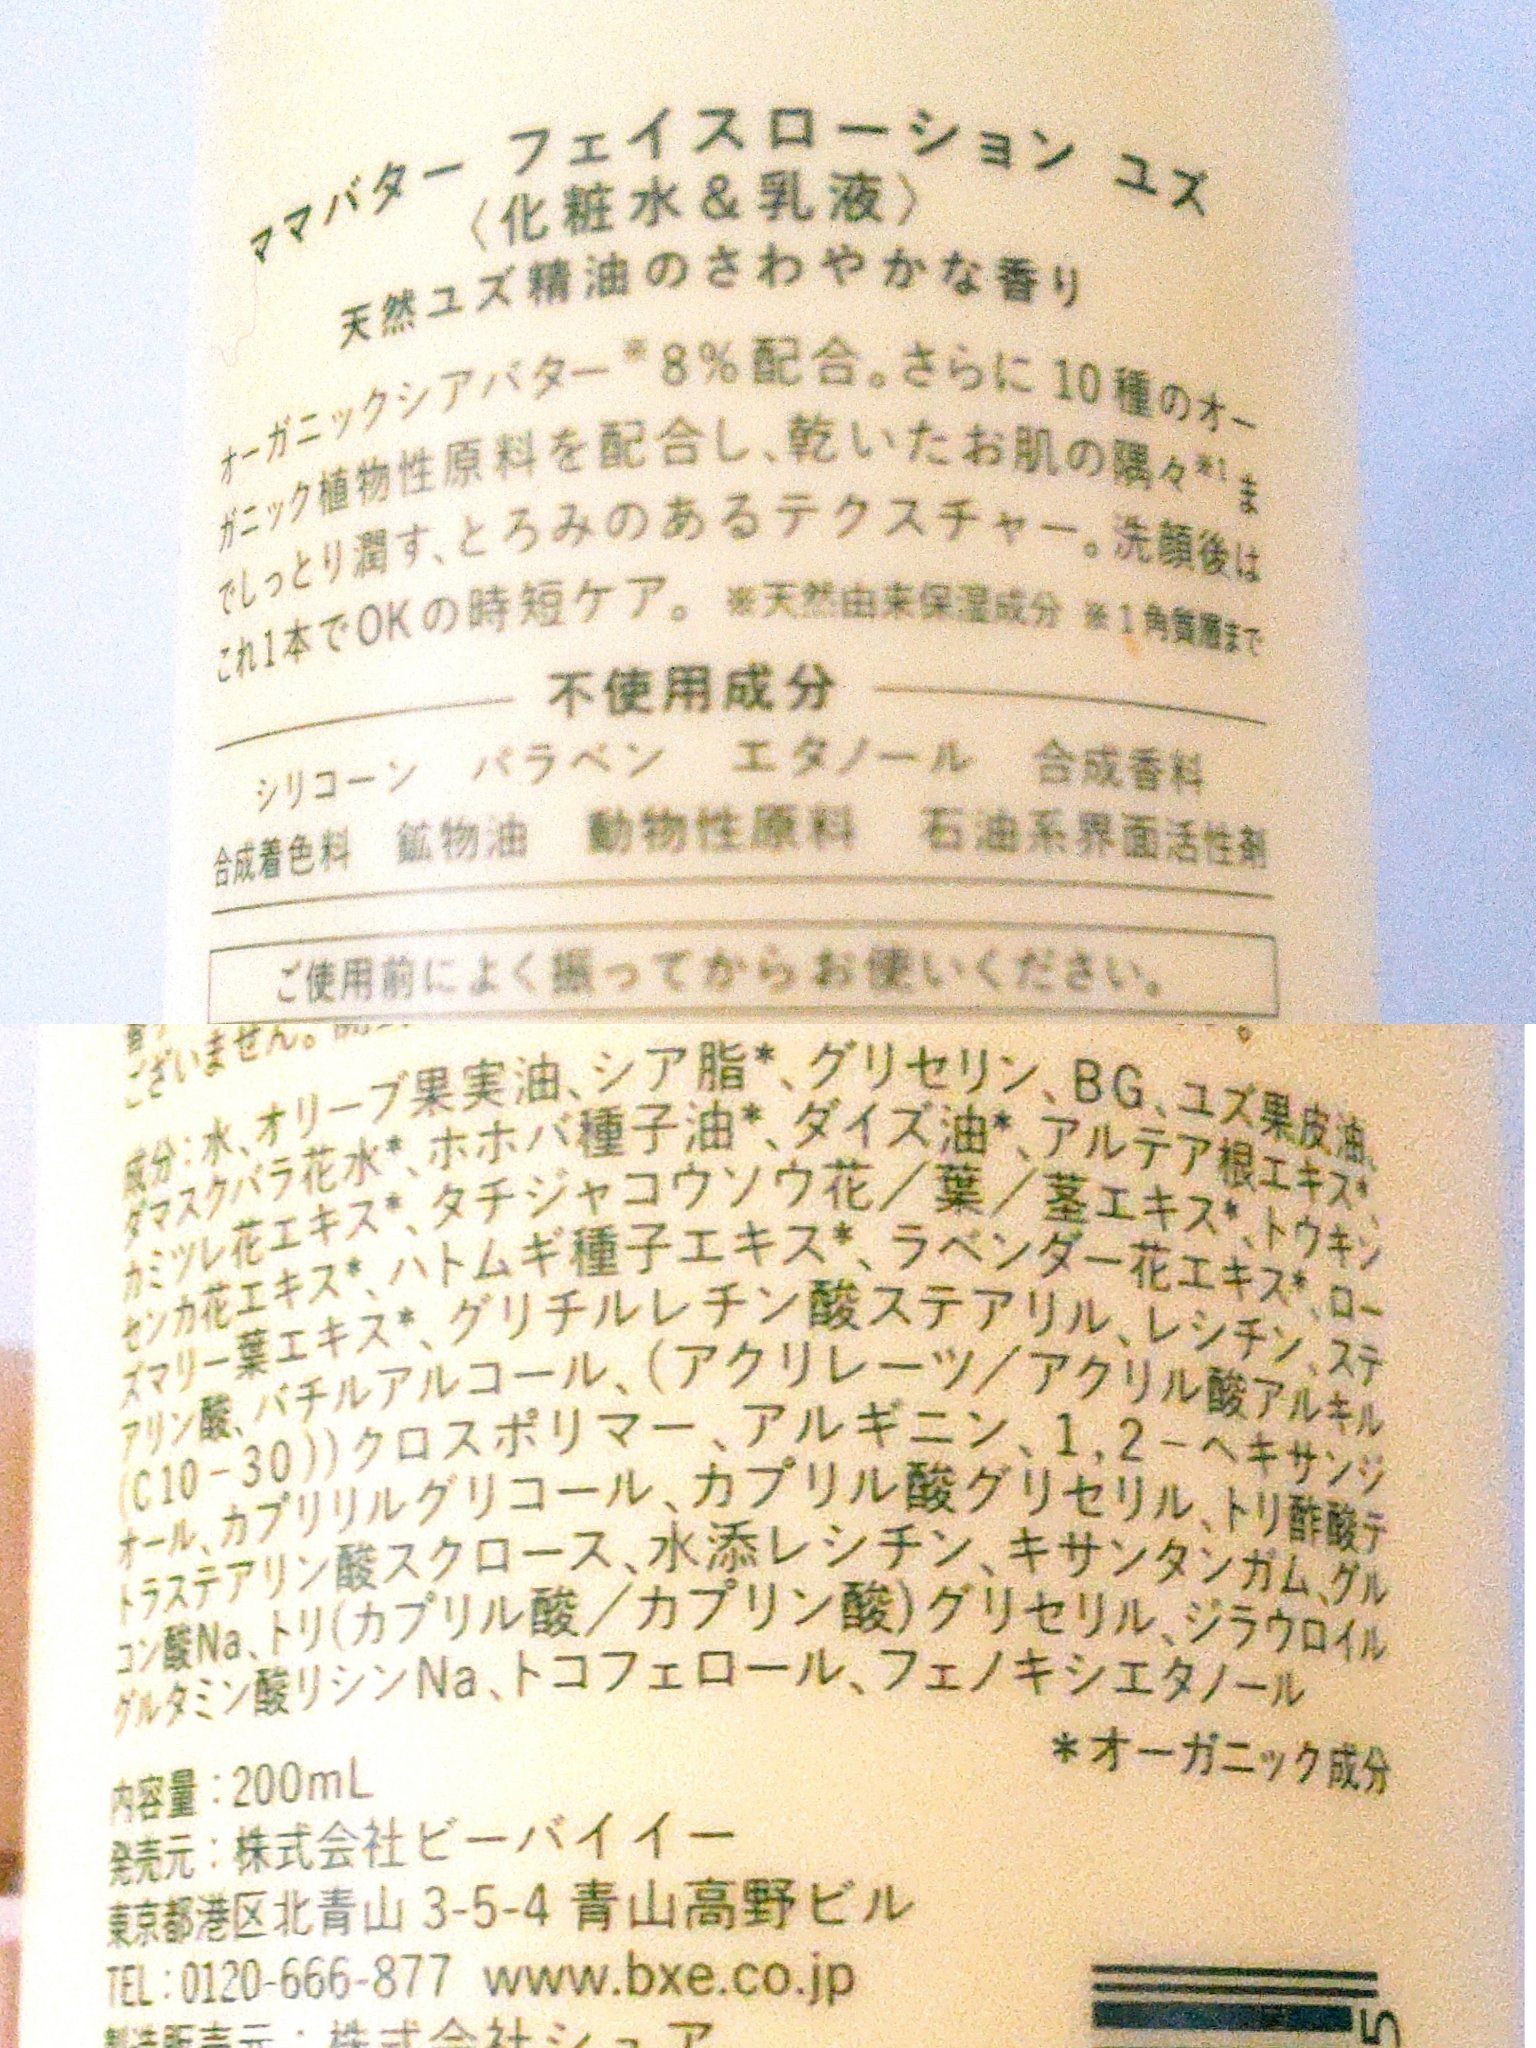 ママバター フェイスローション ユズ
〈化粧水＆乳液〉
天然ユズ精油のさわやかな香り
オーガニックシアバター※8%配合。さらに10種のオー
ガニック植物性原料を配合し、乾いたお肌の隅々※1ま
でしっとり潤す、とろみのあるテクスチャー。洗顔後は
これ1本でOKの時短ケア。 ※天然由来保湿成分 ※1角質層まで
不使用成分
シリコーン パラベン エタノール 合成香料
合成着色料 鉱物油 動物性原料 石油系界面活性剤
ご使用前によく振ってからお使いください。
ございません。
成分：水、オリーブ果実油、シア脂*、グリセリン、BG、ユズ果皮油、
ダマスクバラ花水*、ホホバ種子油*、ダイズ油*、アルテア根エキス*、
カミツレ花エキス*、タチジャコウソウ花／葉／茎エキス*、トウキン
センカ花エキス*、ハトムギ種子エキス*、ラベンダー花エキス*、ロー
ズマリー葉エキス*、グリチルレチン酸ステアリル、レシチン、ステ
アリン酸、バチルアルコール、(アクリレーツ／アクリル酸アルキル
(C10-30))クロスポリマー、アルギニン、1,2-ヘキサンジ
オール、カプリリルグリコール、カプリル酸グリセリル、トリ酢酸テ
トラステアリン酸スクロース、水添レシチン、キサンタンガム、グル
コン酸Na、トリ(カプリル酸／カプリン酸)グリセリル、ジラウロイル
グルタミン酸リシンNa、トコフェロール、フェノキシエタノール
*オーガニック成分
内容量：200mL
発売元：株式会社ビーバイイー
東京都港区北青山 3-5-4 青山高野ビル
TEL：0120-666-877 www.bxe.co.jp
製造販売元：株式会社シュア
5